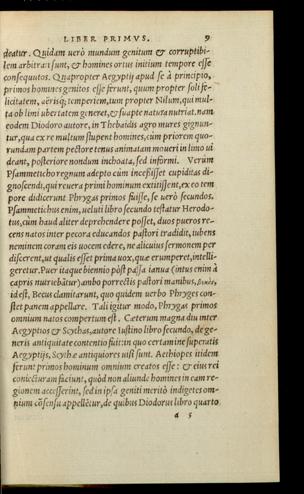 LIBER PRIMVS. 9
deatur. Quidam uerò mundum genitum & corruptibi-
lem arbitrati sunt, & homines ortus initium tempore esse
consequutos. Quapropter Aegyptij apud se à principio,
primos homines genitos esse ferunt, quum propter soli fe-
licitatem, aërisq; temperiem, tum propter Nilum, qui mul-
ta ob limi ubertatem generet, & suapte natura nutriat. nam
eodem Diodoro autore, in Thebaidis agro mures gignun-
tur, qua ex re multum stupent homines, cùm priorem quo-
rundam partem pectore tenus animatam moueri in limo ui
deant, posteriore nondum inchoata, sed informi. Verùm
Psammeticho regnum adepto cùm incessisset cupiditas di-
gnoscendi, qui reuera primi hominum extitissent, ex eo tem
pore didicerunt Phrygas primos fuisse, se uerò secundos.
Psammetichus enim, ueluti libro secundo testatur Herodo-
tus, cùm haud aliter deprehendere posset, duos pueros re-
cens natos inter pecora educandos pastori tradidit, iubens
neminem coram eis uocem edere, ne alicuius sermonem per
discerent, ut qualis esset prima uox, quæ erumperet, intelli-
geretur. Puer itaque biennio pòst passa ianua (intus enim à
capris nutriebātur) ambo porrectis pastori manibus, βεκὸς,
id est, Becus clamitarunt, quo quidem uerbo Phryges con-
stat panem appellare. Tali igitur modo, Phrygas primos
omnium natos compertum est. Cæterum magna diu inter
Aegyptios & Scythas, autore Iustino libro secundo, de ge-
neris antiquitate contentio fuit: in quo certamine superatis
Aegyptijs, Scythæ antiquiores uisi sunt. Aethiopes itidem
ferunt primos hominum omnium creatos esse: & eius rei
coniecturam faciunt, quòd non aliunde homines in eam re-
gionem accesserint, sed in ipsa geniti meritò indigetes om-
nium cōsensu appellētur, de quibus Diodorus libro quarto
a 5